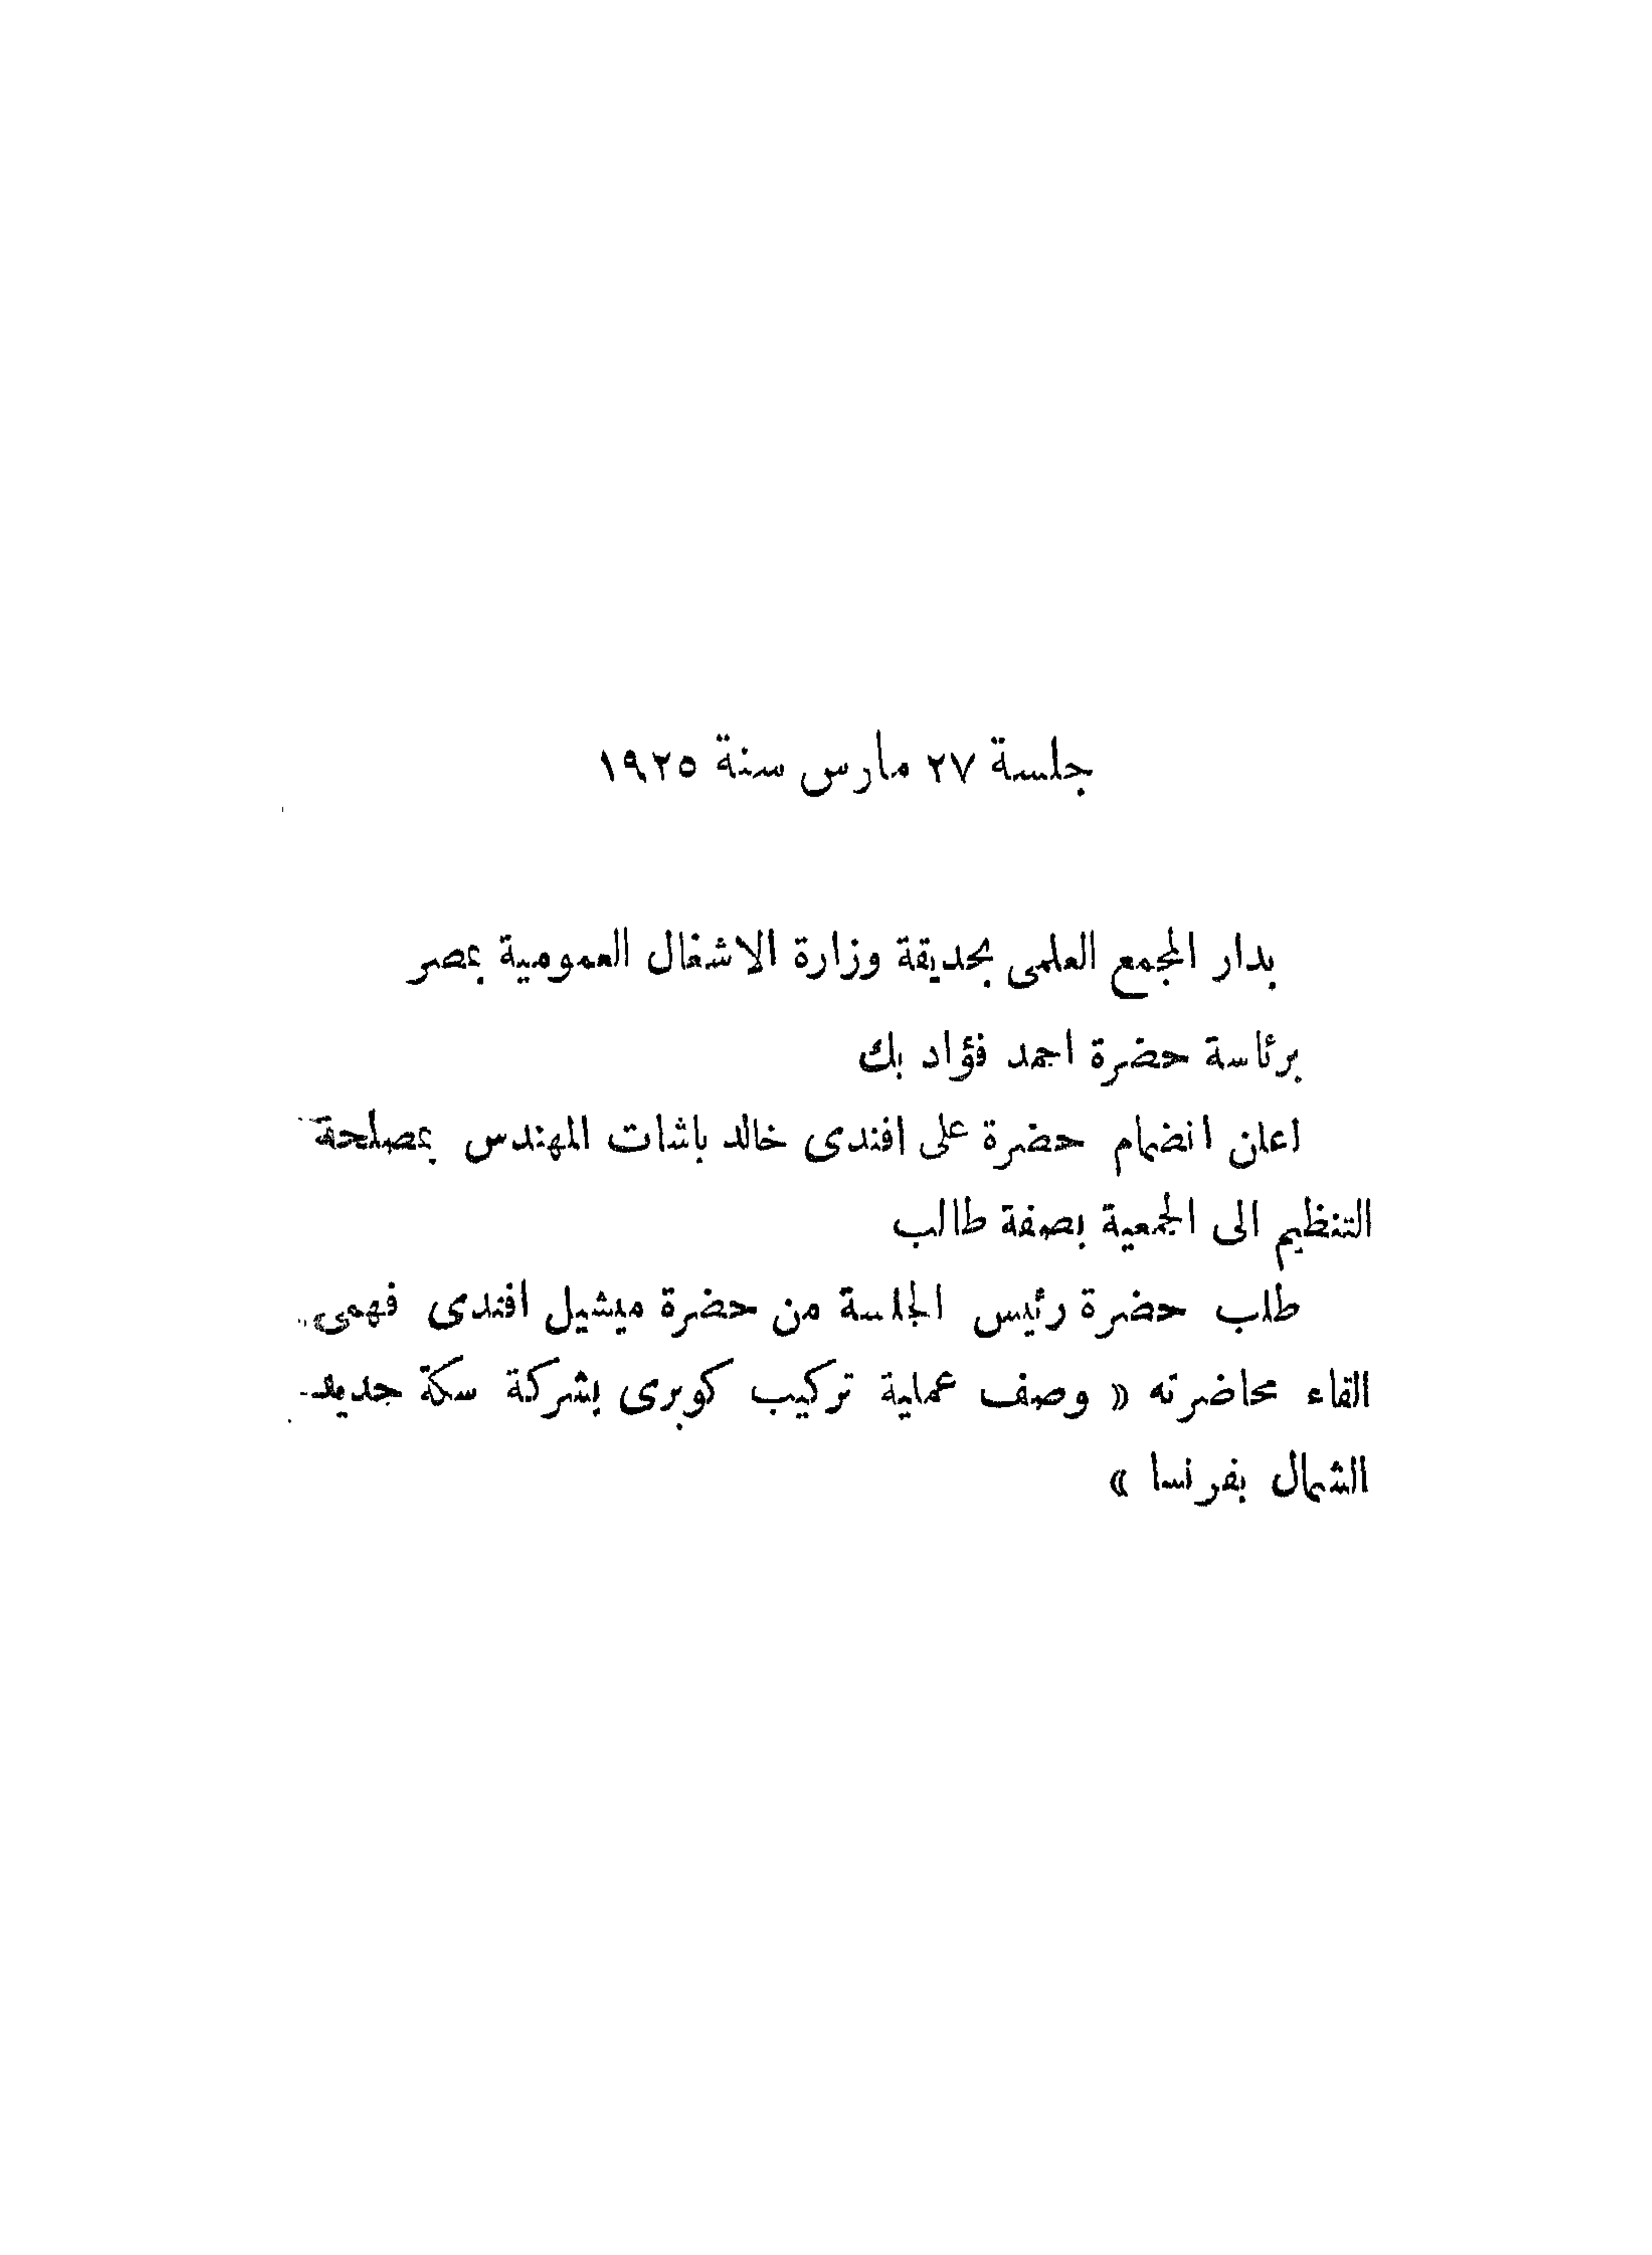 جلسة ٢٧ مارس سنة ١٩٢٥
بدار المجمع العلمى بحديقة وزارة الاشغال العمومية بمصر
برئاسة حضرة احمد فؤاد بك
اعلن انضمام حضرة على افندى خالد باشات المهندس بمصلحة
التنظيم الى الجمعية بصفة طالب
طلب حضرة رئيس الجلسة من حضرة ميشيل افندى فهمى
القاء محاضرته « وصف عملية تركيب كوبرى بشركة سكة جديد
الشمال بفرنسا »